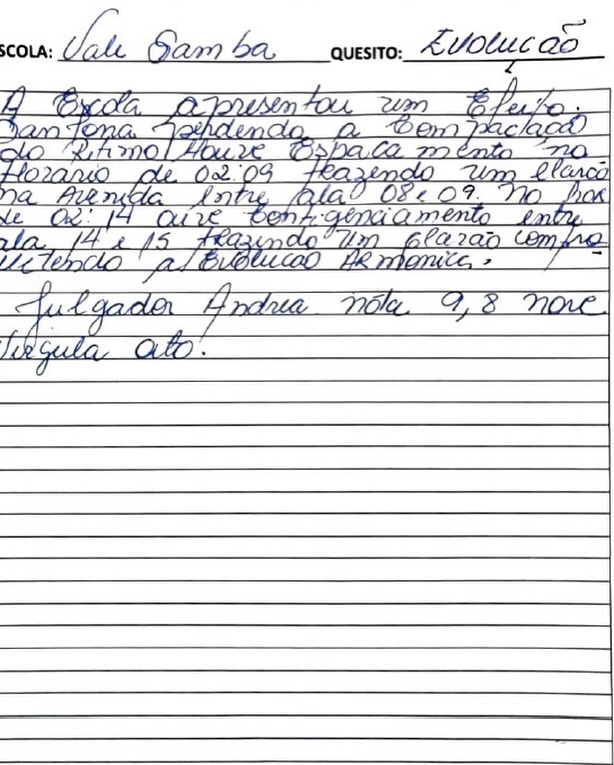 SCOLA: Vale Samba QUESITO: Evolução
A Escola apresentou um Efeito.
Sanfona perdendo a Compactação
do Ritimo Houve Espaca mento no
Horario de 02:09 trazendo um clarão
na Avenida Entre ala 08 e 09. No hor
de 02:14 ouve Contigenciamento entre
ala 14 e 15 trazendo um Clarão compro
metendo a Evolucao Armonica.
Julgador Andrea nota 9,8 nove
Virgula oito.